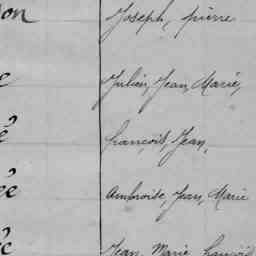 on Joseph, pierre
e Julien, Jean, Marie,
é françois, Jean,
ée Ambroise, Jean, Marie
éc Jean, Marie françois